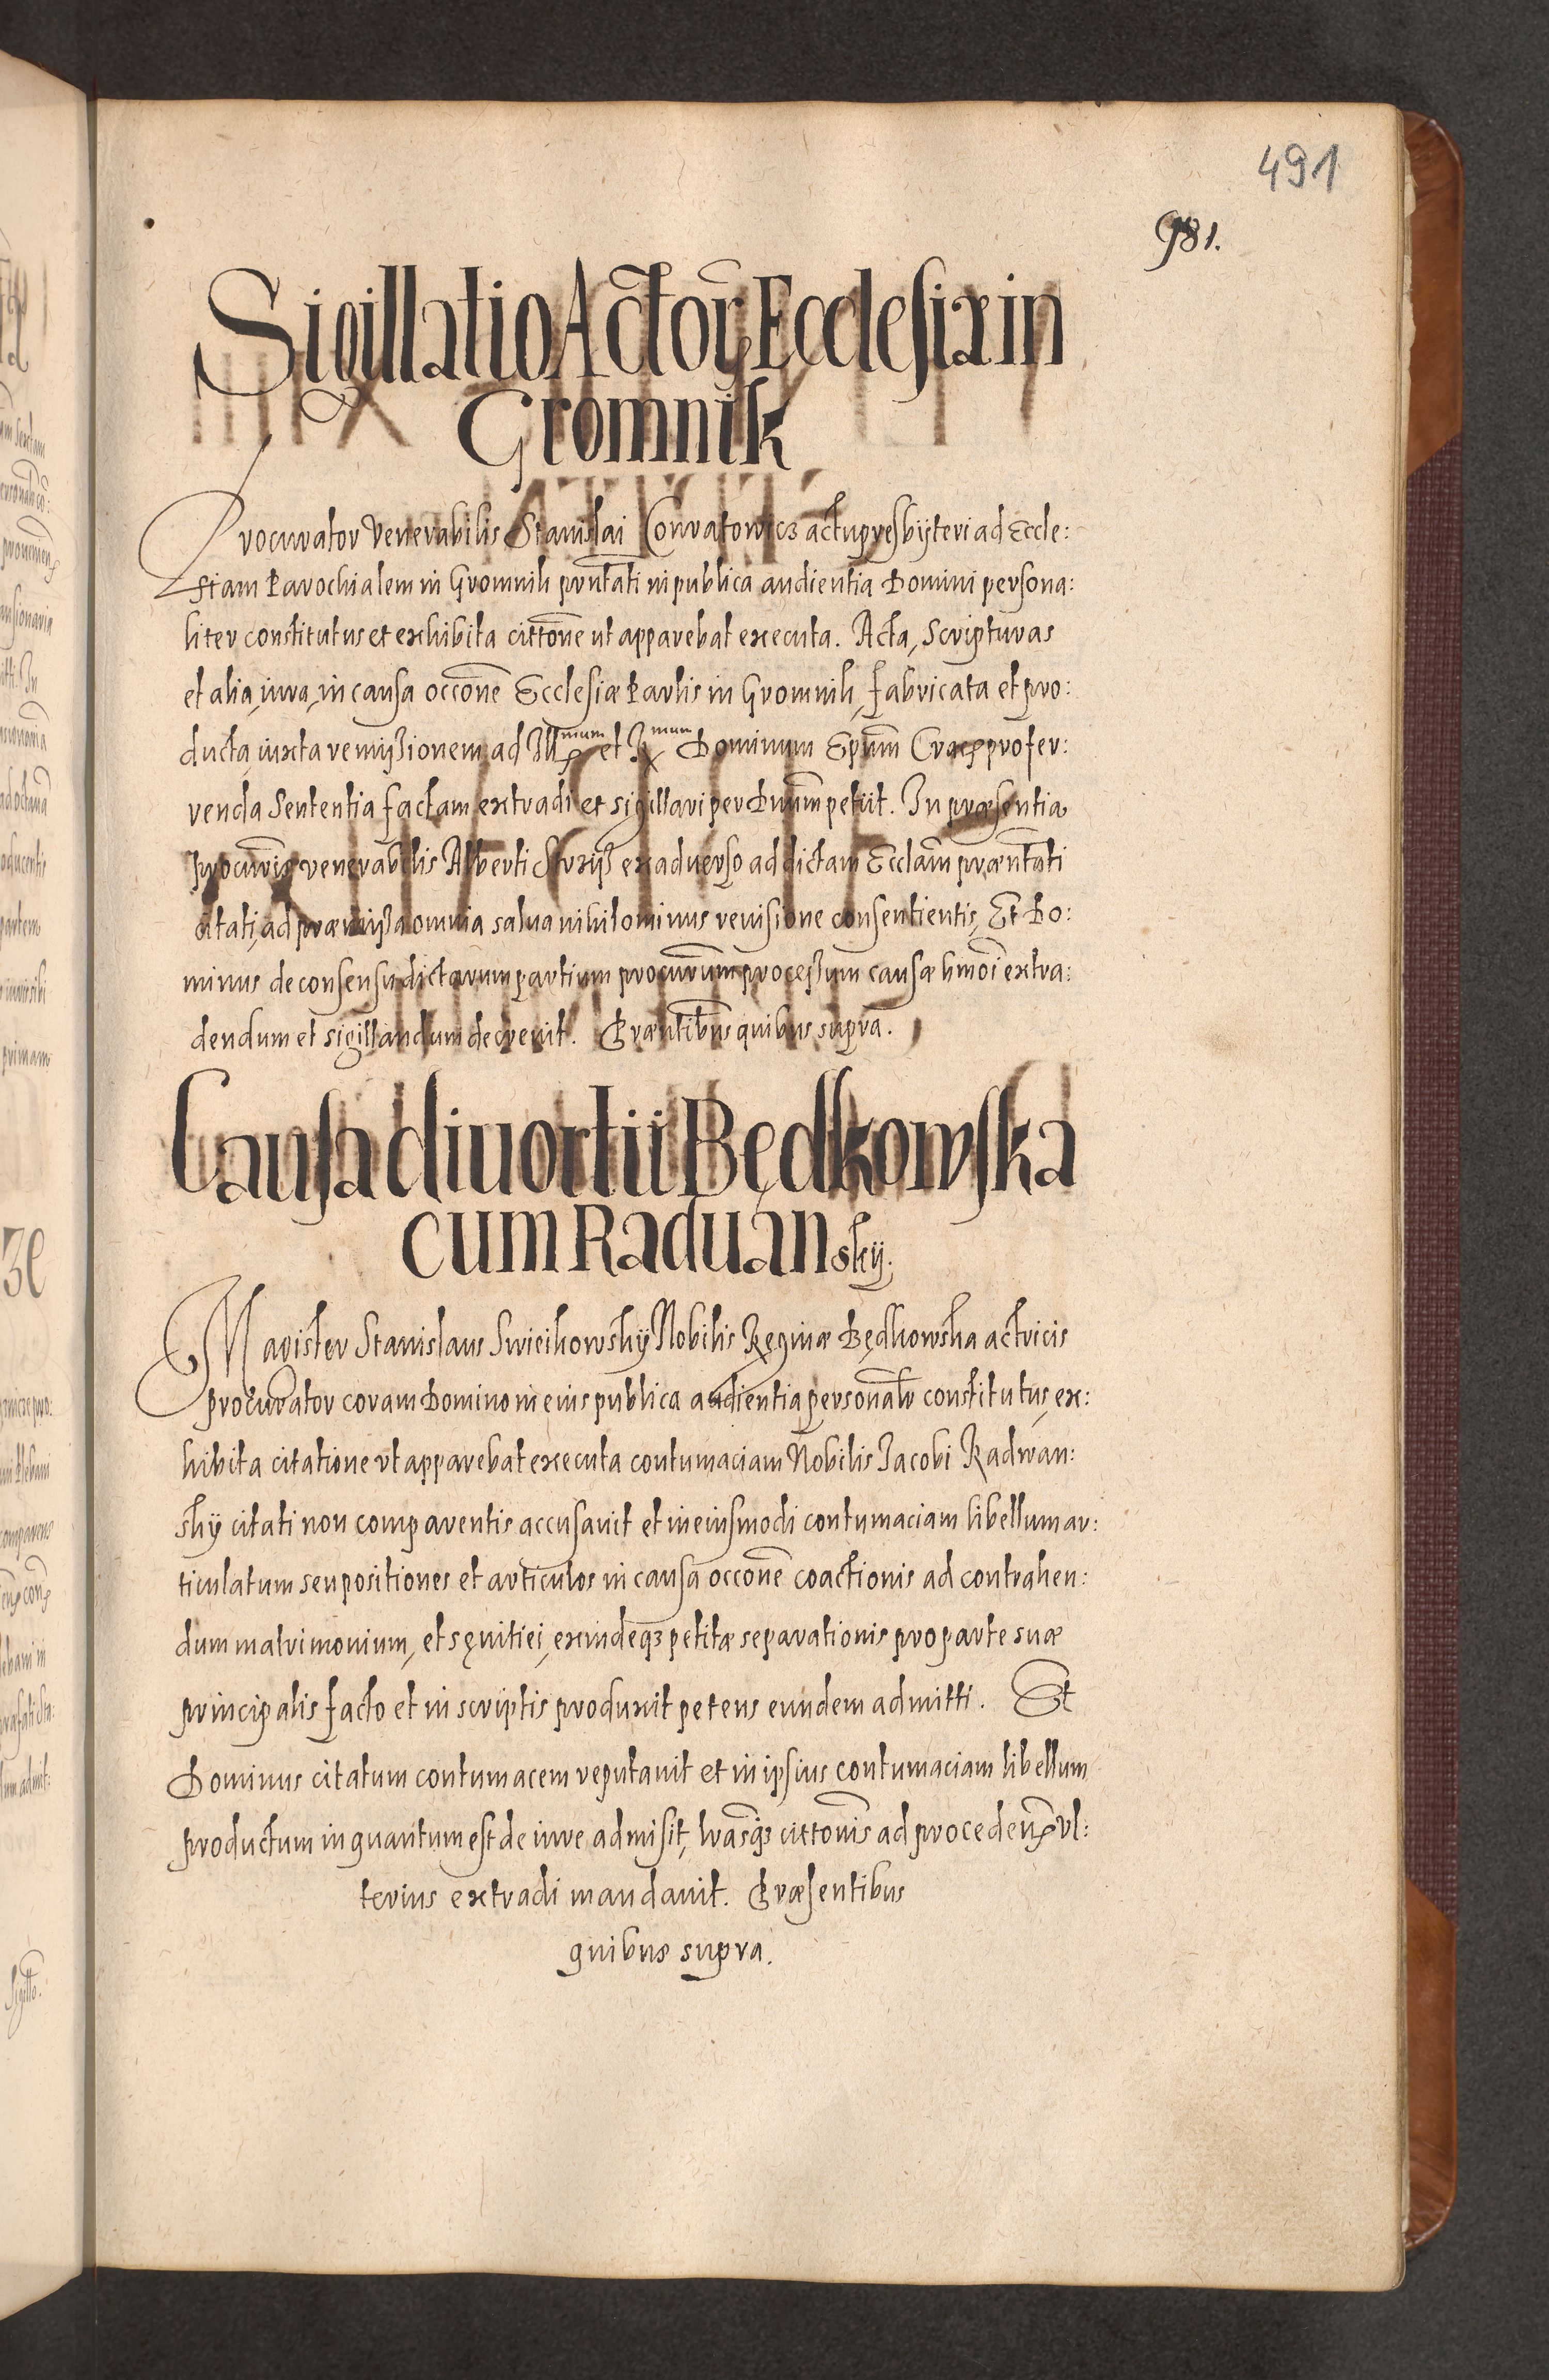 491
981.
Sigillatio Actorꝝ Ecclesiæ in
Gromnik
Procurator Venerabilis Stanislai Conratowicz actu presbyteri ad Eccle:
siam Parochialem in Gromnik prntati in publica audientia Domini persona:
liter constitutus et exhibita cittone ut apparebat executa. Acta, Scripturas
et alia iura, in causa occone Ecclesiæ Parlis in Gromnik, fabricata et pro:
ducta, iuxta remissionem ad Illmum et Rmum Dominum Epum Crac. profer:
renda Sententia factam extradi et sigillari per Dnum petiit. In præsentia
procuris venerabilis Alberti ex aduerso ad dictam Ecclam præntati
citati, ad præmissa omnia salua nihilominus reuisione consentientis, Et Do:
minus de consensu dictarum partium procurum processum causæ hmoi extra:
dendum et sigillandum decreuit. Præntibus quibus supra.
Causa diuortii Będkowska
cum Raduansky.
Magister Stanislaus Swieikowsky Nobilis Reginæ Będkowska actricis
procurator coram Domino in eius publica audientia personalr constitutus, ex:
hibita citatione vt apparebat executa contumaciam Nobilis Jacobi Radwan:
sky citati non comparentis accusauit et in eiusmodi contumaciam libellum ar:
ticulatum seu positiones et articulos in causa occone coactionis ad contrahen:
dum matrimonium, et sęuitiei, exindeqз petitæ separationis pro parte suæ
principalis facto et in scriptis produxit petens eundem admitti. Et
Dominus citatum contumacem reputauit et in ipsius contumaciam libellum
productum in quantum est de iure admisit, lrasqз cittonis ad procedenꝝ vl:
terius extradi mandauit. Præsentibus
quibus supra.